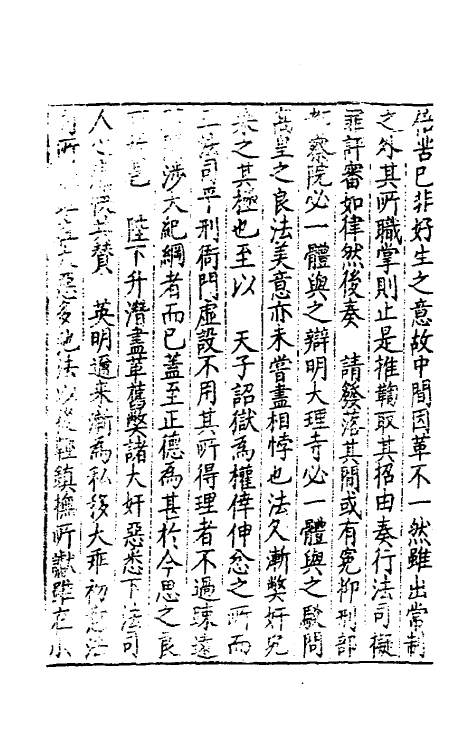 苦已非好生之意故中間因革不一然雖出常制
之外其所職掌則止是推鞫取其招由奏行法司擬
罪評審如律然後奏　請發落其間或有冤抑刑部
都察院必一體與之辯明大理寺必一體與之駁問
之良法美意亦未嘗盡相悖也法久漸弊奸宄
乘之其極也至以　天子詔獄為權倖伸忿之所而
三法司乎刑衙門虛設不用其所得理者不過踈遠
涉大紀綱者而已蓋至正德為甚於今思之良
陛下升潛盡革舊弊諸大奸惡悉下法司
人心共贊　英明邇来漸為私移大乖初意
所大惡多也法鎮撫所獄雖在小